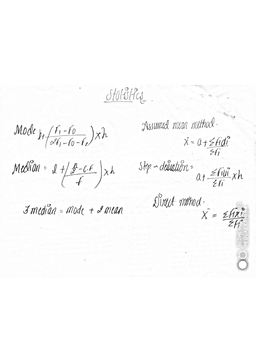 Statistics
Mode = l + (f1 - f0 / 2f1 - f0 - f2) x h
Median = l + (n/2 - c.f / f) x h
3 median = mode + 2 mean
Assumed mean method -
x̄ = a + Σfidi / Σfi
Step - deviation -
a + Σfiui / Σfi x h
Direct method -
x̄ = Σfixi / Σfi